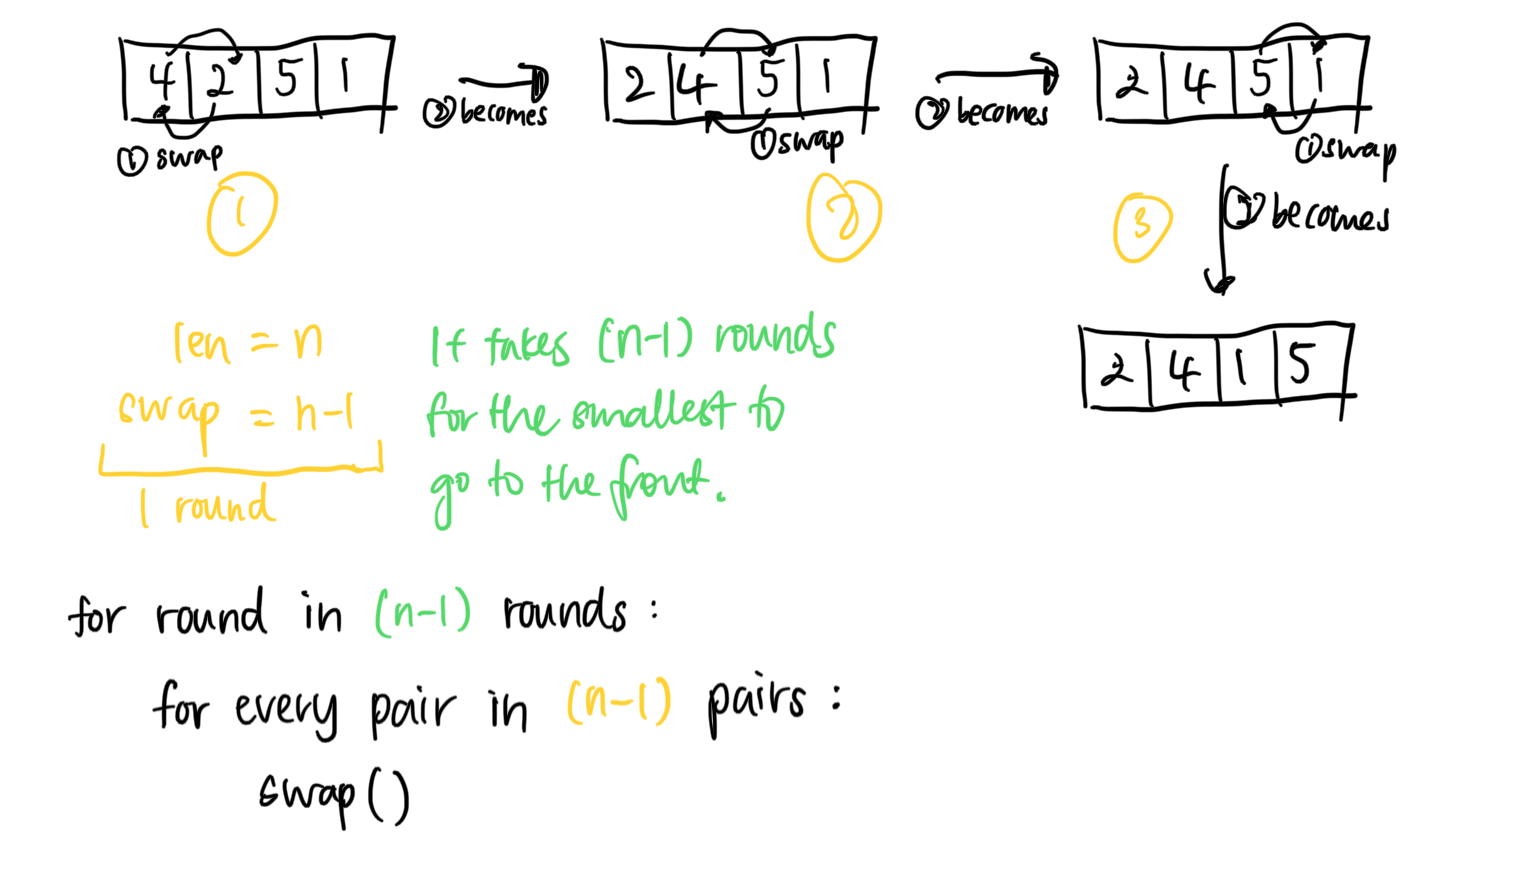 4 2 5 1
① swap
② becomes
1
2 4 5 1
① swap
② becomes
2
2 4 5 1
① swap
② becomes
3
2 4 1 5
len = n
swap = n-1
1 round
It takes (n-1) rounds
for the smallest to
go to the front.
for round in (n-1) rounds :
for every pair in (n-1) pairs :
swap()